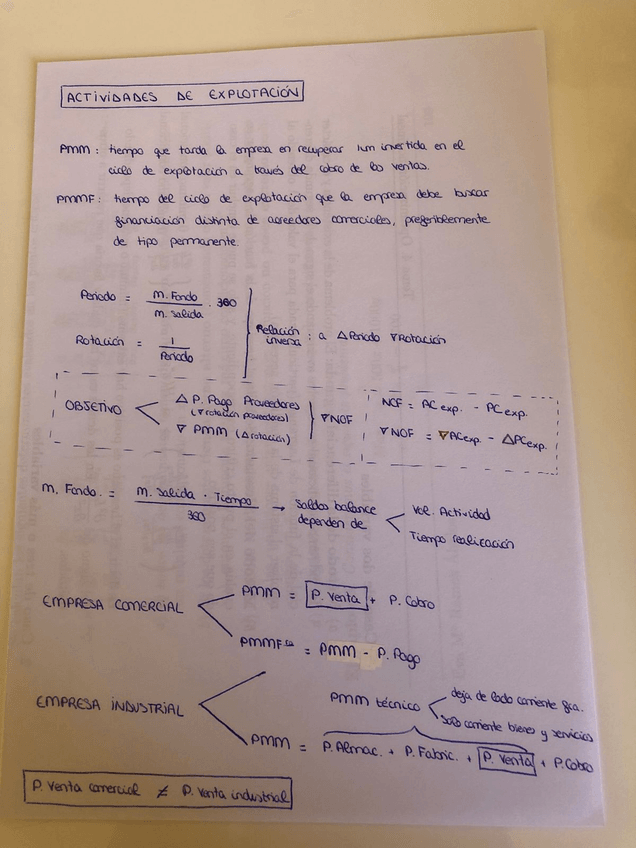 ACTIVIDADES DE EXPLOTACIÓN
PMM: tiempo que tarda la empresa en recuperar 1um invertida en el
ciclo de explotación a través del cobro de las ventas.
PMMF: tiempo del ciclo de explotación que la empresa debe buscar
financiación distinta de acreedores comerciales, preferiblemente
de tipo permanente.
Periodo = M. Fondo / M. Salida · 360
Rotación = 1 / Periodo
Relación inversa: a △Periodo ▽Rotación
OBJETIVO
△ P. Pago Proveedores
(▽rotación proveedores)
▽ PMM (△rotación)
▽NOF
NOF = AC exp. - PC exp.
▽NOF = ▽ACexp. - △PCexp.
M. Fondo. = M. Salida · Tiempo / 360 → Saldos balance
dependen de
Vol. Actividad
Tiempo realización
EMPRESA COMERCIAL
PMM = P. Venta + P. Cobro
PMMF = PMM - P. Pago
EMPRESA INDUSTRIAL
PMM técnico
deja de lado corriente fca.
solo corriente bienes y servicios
PMM = P. Almac. + P. Fabric. + P. Venta + P. Cobro
P. Venta comercial ≠ P. Venta industrial